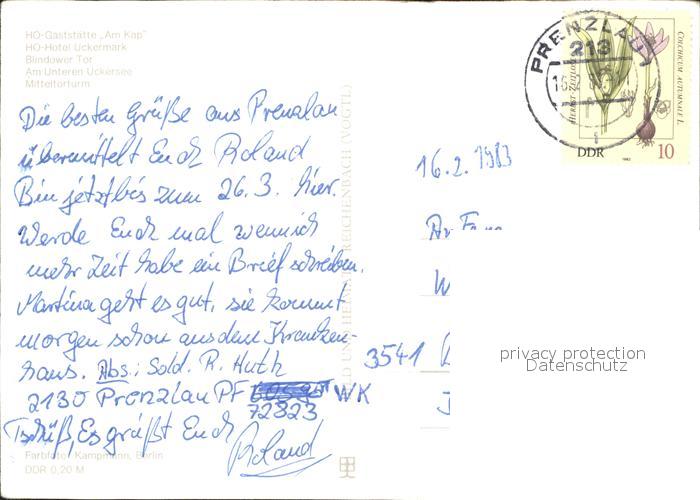 HO-Gaststätte „Am Kap"
HO-Hotel Uckermark
Blindower Tor
Am Unteren Uckersee
Mitteltorturm
Die besten Grüße aus Prenzlau
übermittelt Euch Roland
Bin jetzt bis zum 26.3. hier.
Werde Euch mal wenn ich
mehr Zeit habe ein Brief schreiben.
Martina geht es gut, sie kommt
morgen schon aus dem Kranken-
haus. Abs.: Sold. R. Huth
2130 Prenzlau PF WK
72823
Tschüß, Es grüßt Euch
Roland
Farbfoto: Kampmann, Berlin
DDR 0,20 M
REICHENBACH (VOGTL)
PRENZLAU
213
HERBST-ZEITLOSE
COLCHICUM AUTUMNALE L.
DDR
1982
10
16.2.1983
3541
privacy protection
Datenschutz